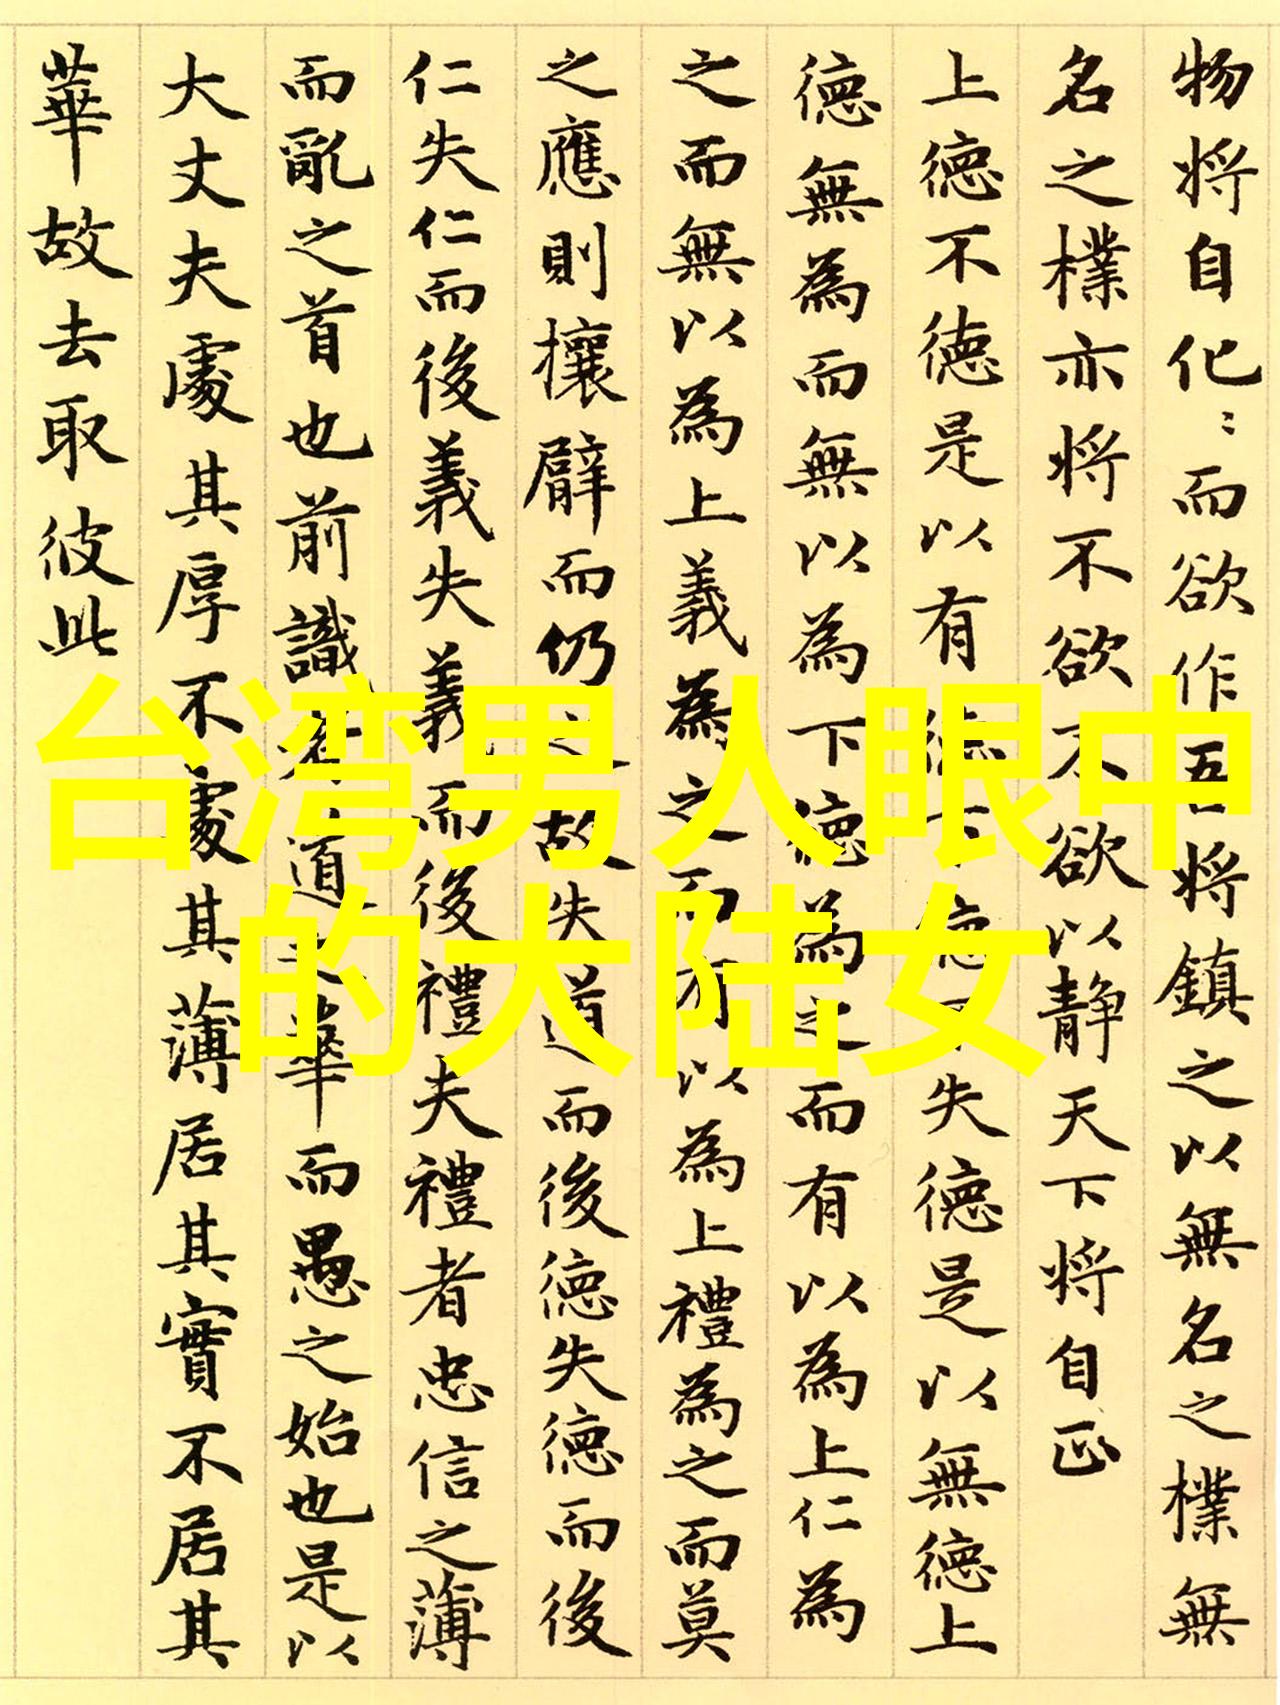 物将自化〻而欲作吾将鎮之以無名之樸無
名之樸亦将不欲不欲以静天下将自正
上德不德是以有德下德不失德是以無德上
德無為而無以為下德為之而有以為上仁為
之而無以為上義為之而有以為上禮為之而莫
之應則攘臂而仍之故失道而後德失德而後
仁失仁而後義失義而後禮夫禮者忠信之薄
而亂之首也前識者道之華而愚之始也是以
大丈夫處其厚不處其薄居其實不居其
華故去取彼此
台湾男人眼中
的大陆女